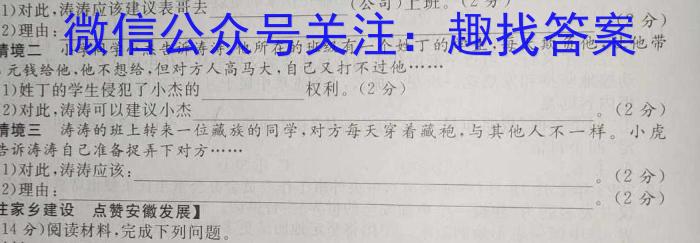 1)对此,涛涛应该建议表哥去____(公司)上班。(2分)
2)理由:____(2分)
微信公众号关注：趣找答案
情境二 小
元钱给他,他不想给,但对方人高马大,自己又打不过他……
1)姓丁的学生侵犯了小杰的____权利。(2分)
2)对此,涛涛可以建议小杰____。(2分)
情境三 涛涛的班上转来一位藏族的同学,对方每天穿着藏袍,与其他人不一样。小虎
告诉涛涛自己准备捉弄下对方……
1)对此,涛涛应该:____。(2分)
2)理由:____。(2分)
注家乡建设 点赞安徽发展】
14分)阅读材料,完成下列问题。